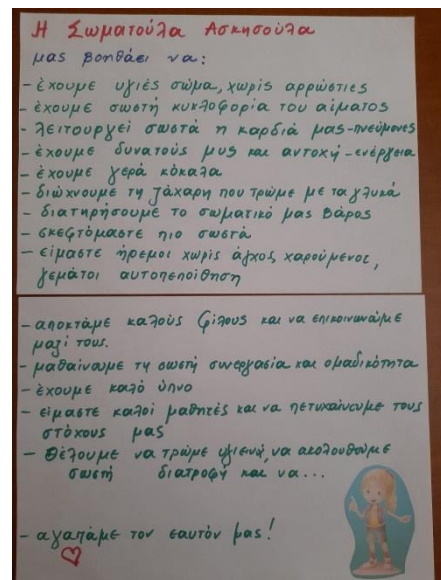 Η Σωματούλα Ασκησούλα
μας βοηθάει να:
- έχουμε υγιές σώμα, χωρίς αρρώστιες
- έχουμε σωστή κυκλοφορία του αίματος
- λειτουργεί σωστά η καρδιά μας - πνεύμονες
- έχουμε δυνατούς μυς και αντοχή - ενέργεια
- έχουμε γερά κόκαλα
- διώχνουμε τη ζάχαρη που τρώμε με τα γλυκά
- διατηρήσουμε το σωματικό μας βάρος
- σκεφτόμαστε πιο σωστά
- είμαστε ήρεμοι χωρίς άγχος, χαρούμενοι,
γεμάτοι αυτοπεποίθηση
- αποκτάμε καλούς φίλους και να επικοινωνούμε
μαζί τους.
- μαθαίνουμε τη σωστή συνεργασία και ομαδικότητα
- έχουμε καλό ύπνο
- είμαστε καλοί μαθητές και να πετυχαίνουμε τους
στόχους μας
- θέλουμε να τρώμε υγιεινά, να ακολουθούμε
σωστή διατροφή και να...
- αγαπάμε τον εαυτόν μας!